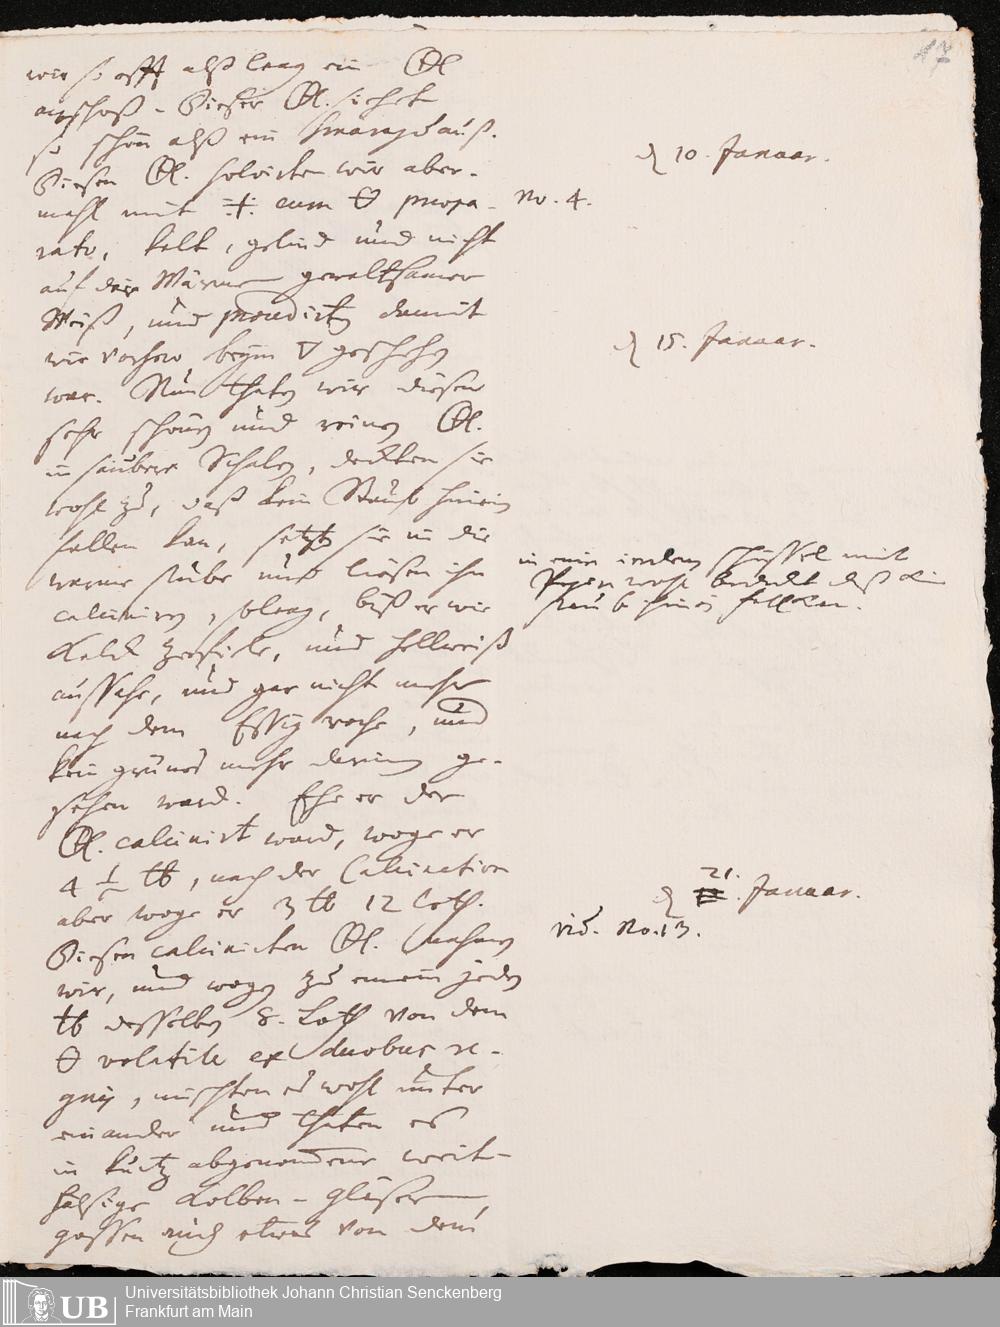 17
wir so offt alß lang ein
anschoß - Dieser sichet
so schön alß ein Smaragd auß.
Diesen solvirten wir aber-
mahl mit cum præpa-
rato, kalt, gelind und nicht
auf der Wärme gewaltsamer
Weiß, und procedirten damit
wie vorhero beym 🜄 geschehen
war. Nun thaten wir diesen
sehr schönen und reinen
in saubere Schalen, deckten sie
wohl zu, daß kein Staub hinein
fallen kan, setzten sie in die
warme stube und liesen ihn
calciniren, solang, biß er wie
Kalck zerfiele, und hellweiß
aussahe, und gar nicht mehr
nach dem Essig roche, und
kein grünes mehr darinn ge-
sehen ward. Ehe er der
calcinirt ward, woge er
4 ½ ℔, nach der Calcination
aber woge er 3 ℔ 12 Loth.
Diesen calcinirten nahmen
wir, und wogen zu einem jeden
℔ desselben 8. Loth von dem
volatile ex duobus re-
gnis, mischten es wohl unter
einander und thaten es
in kurtz abgenommene weit-
hälsige Kolben-gläser,
gossen auch etwas von dem
d 10. Januar.
No. 4.
d 15. Januar.
in eine irdene schüssel mit
Papier wohl bedeckt daß kein
staub hinein fallen kan.
d 21. Januar.
vid. No. 13.
UB
Universitätsbibliothek Johann Christian Senckenberg
Frankfurt am Main